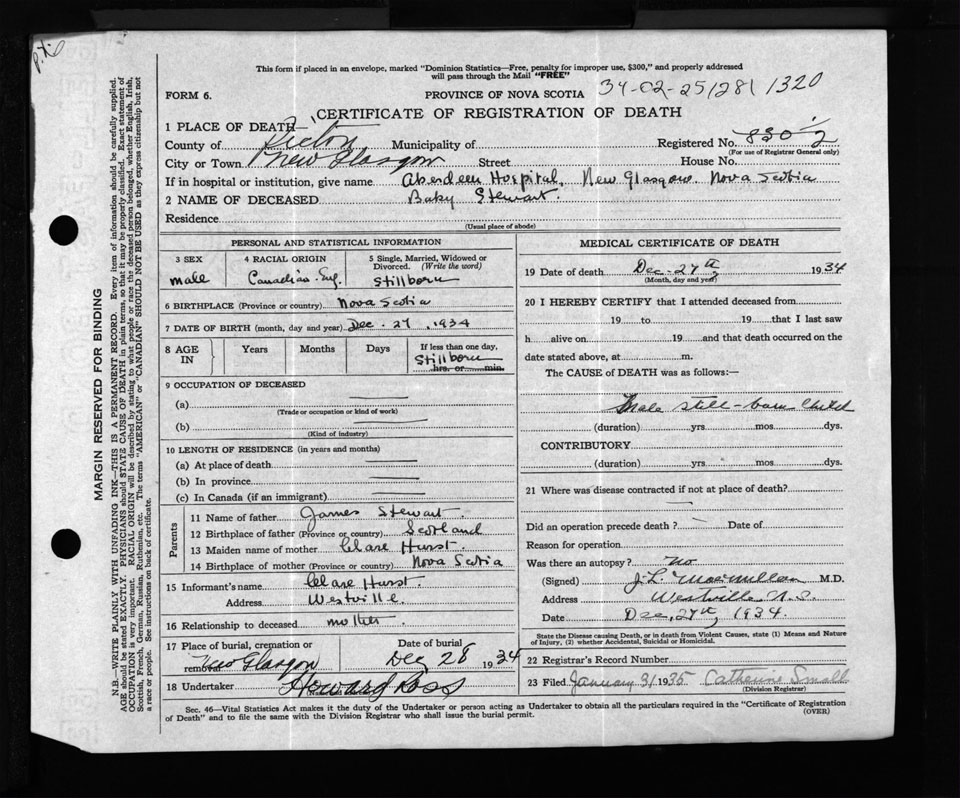 This form if placed in an envelope, marked "Dominion Statistics—Free, penalty for improper use, $300," and properly addressed
will pass through the Mail "FREE"
FORM 6. PROVINCE OF NOVA SCOTIA 34-02-25/28/ 1320
CERTIFICATE OF REGISTRATION OF DEATH
1 PLACE OF DEATH—
County of Pictou Municipality of Registered No. 830
(For use of Registrar General only)
City or Town New Glasgow Street House No.
If in hospital or institution, give name Aberdeen Hospital, New Glasgow. Nova Scotia
2 NAME OF DECEASED Baby Stewart.
Residence
(Usual place of abode)
PERSONAL AND STATISTICAL INFORMATION
3 SEX 4 RACIAL ORIGIN 5 Single, Married, Widowed or Divorced. (Write the word)
male Canadian-Eng. Stillborn
6 BIRTHPLACE (Province or country) Nova Scotia
7 DATE OF BIRTH (month, day and year) Dec. 27, 1934
8 AGE IN Years Months Days If less than one day,
Stillborn
hrs. or min.
9 OCCUPATION OF DECEASED
(a)
(Trade or occupation or kind of work)
(b)
(Kind of industry)
10 LENGTH OF RESIDENCE (in years and months)
(a) At place of death
(b) In province
(c) In Canada (if an immigrant)
Parents
11 Name of father James Stewart.
12 Birthplace of father (Province or country) Scotland
13 Maiden name of mother Clare Hurst.
14 Birthplace of mother (Province or country) Nova Scotia
15 Informant's name Clare Hurst.
Address Westville.
16 Relationship to deceased mother
17 Place of burial, cremation or removal New Glasgow Date of burial Dec 28 1934
18 Undertaker Howard Ross
MEDICAL CERTIFICATE OF DEATH
19 Date of death Dec. 27th 1934
(Month, day and year)
20 I HEREBY CERTIFY that I attended deceased from
19 to 19 that I last saw
h alive on 19 and that death occurred on the
date stated above, at m.
The CAUSE of DEATH was as follows:—
Male still-born child
(duration) yrs mos. dys.
CONTRIBUTORY
(duration) yrs mos. dys.
21 Where was disease contracted if not at place of death?
Did an operation precede death? Date of
Reason for operation
Was there an autopsy? No
(Signed) J.L. Macmillan M.D.
Address Westville N.S.
Date Dec, 27th, 1934.
State the Disease causing Death, or in death from Violent Causes, state (1) Means and Nature
of Injury, (2) whether Accidental, Suicidal or Homicidal.
22 Registrar's Record Number
23 Filed January 3/ 1935 Catherine Small
(Division Registrar)
Sec. 46—Vital Statistics Act makes it the duty of the Undertaker or person acting as Undertaker to obtain all the particulars required in the "Certificate of Registration
of Death" and to file the same with the Division Registrar who shall issue the burial permit. (OVER)
MARGIN RESERVED FOR BINDING
N.B.—WRITE PLAINLY WITH UNFADING INK—THIS IS A PERMANENT RECORD. Every item of information should be carefully supplied.
AGE should be stated EXACTLY. PHYSICIANS should STATE CAUSE OF DEATH in plain terms, so that it may be properly classified. Exact statement of
OCCUPATION is very important. RACIAL ORIGIN will be described by stating to what people or race the deceased person belonged, whether English, Irish,
Scottish, French, German, Russian, Ruthenian, etc. The terms "AMERICAN" or "CANADIAN" SHOULD NOT BE USED as they express citizenship but not
a race or people. See instructions on back of certificate.